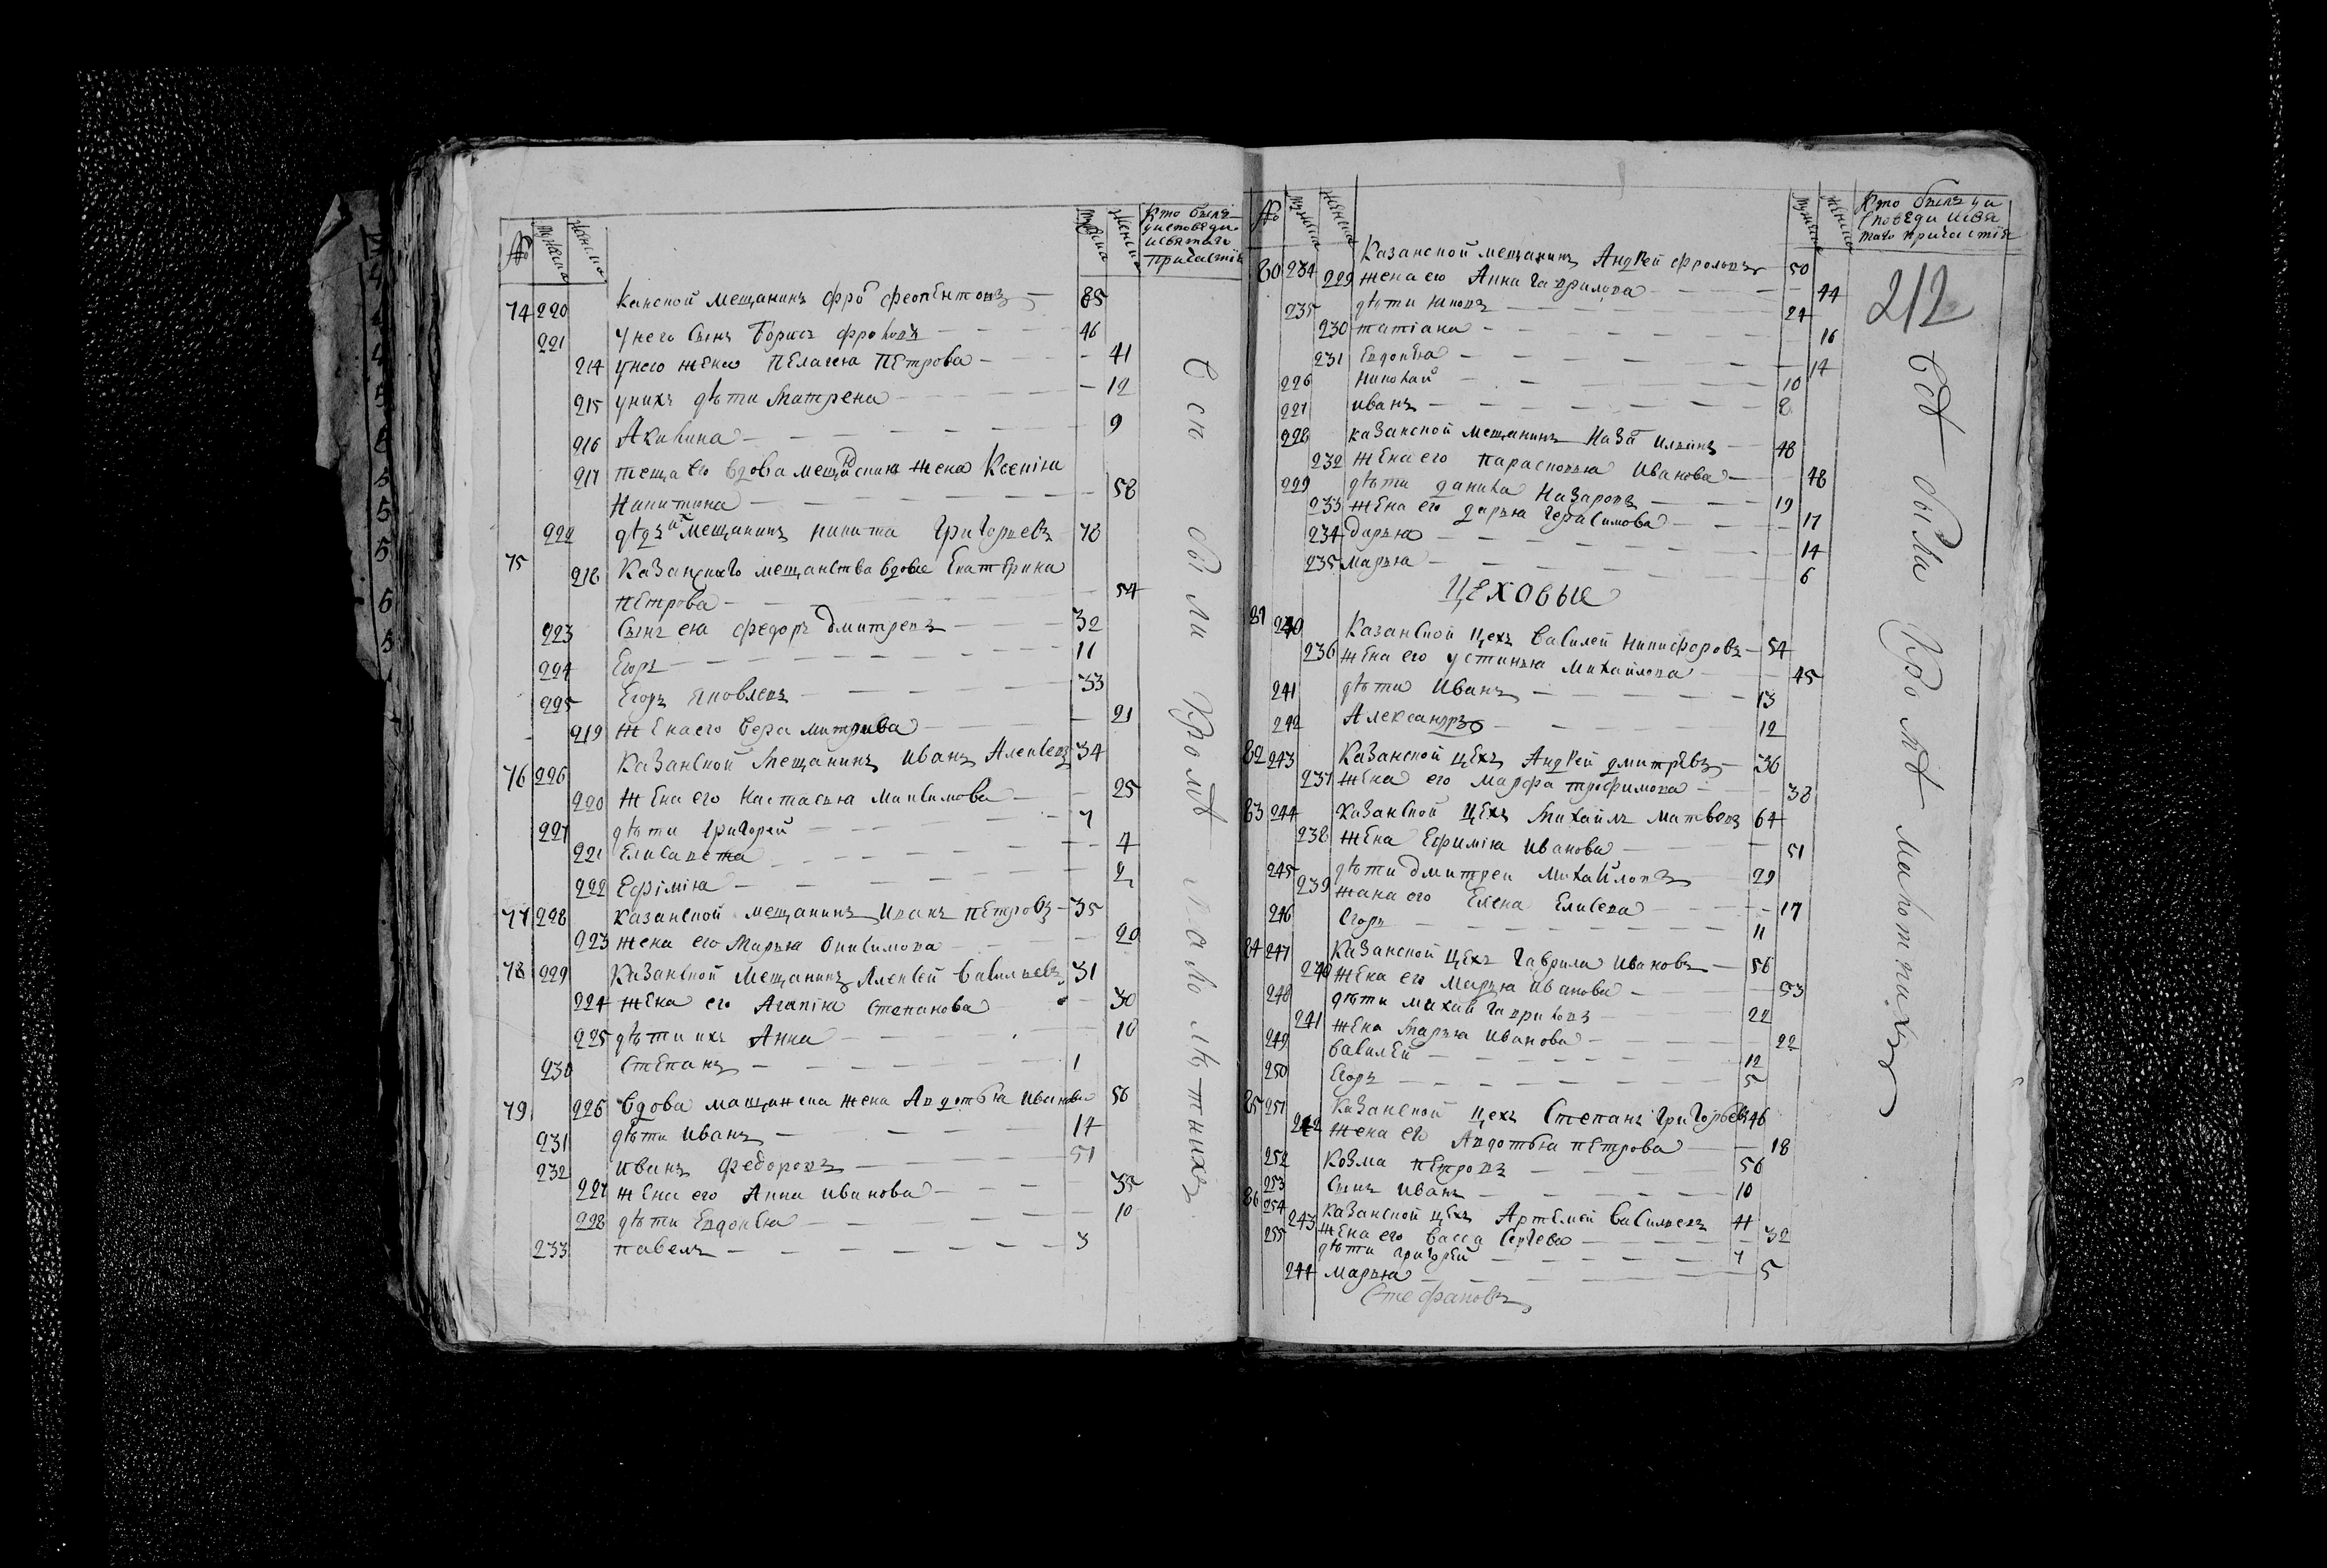 № мужеска женска мужеска женска Кто былъ
у исповеди
и святаго
причастiя
74 220 Канской мещанинъ Фро Феопентовъ 85
221 у него сынъ Борисъ Фроловъ 46
214 у него жена Пелагея Петрова 41
215 у нихъ дѣти Матрена 12
216 Акилина 9
217 теща его вдова мещанская жена Ксенiя
Никитина 58
222 дѣдъ их мещанинъ Никита Григорьевъ 78
75 218 Казанскаго мещанства вдова Екатерина
Петрова 54
223 Сынъ ея Федоръ Дмитревъ 32
224 Егоръ 11
225 Егоръ Яковлевъ 33
219 Жена его Вера Митрива 21
76 226 Казанской мещанинъ Иванъ Алексевъ 34
220 Жена его Настасья Максимова 25
227 дѣти Григорей 7
221 Елисавета 4
222 Ефiмiя 2
77 228 Казанской мещанинъ Иванъ Петровъ 35
223 жена его Марья Онисимова 20
78 229 Казанской мещанинъ Алексей Васильевъ 31
224 жена его Агапiя Степанова 30
225 дѣти ихъ Анна 10
230 Степанъ 1
79 226 Вдова мащанска жена Авдотья Иванова 56
231 дѣти Иванъ 17
232 Иванъ Федоровъ 51
227 жена его Анна Иванова 35
228 дѣти Евдокея 10
233 Павелъ 3
были кромѣ малолѣтнихъ
№ мужеска женска мужеска женска Кто былъ у и
споведи и свя
таго причастiя
212
80 234 Казанской мещанинъ Андрей Фроловъ 50
229 жена его Анна Гаврилова 44
235 дѣти 24
230 Татiана 16
231 Евдокея 14
226 Николай 10
227 Иванъ 8
228 Казанской мещанинъ Наза Ильинъ 48
232 жена его Парасковья Иванова 48
229 дѣти Данила Назаровъ 19
233 жена его Дарья Герасимова 17
234 Дарья 14
235 Марья 6
Цеховые
81 240 Казанской цехъ Василей Никифоровъ 54
236 жена его Устинья Михайлова 45
241 дѣти Иванъ 13
242 Александръ 12
82 243 Казанской цехъ Андрей Дмитревъ 36
237 жена его Марфа Трофимова 38
83 244 Казанской цехъ Михайлъ Матвевъ 64
238 жена Ефимiя Иванова 51
245 дѣти Дмитреи Михайловъ 29
239 жана его Елена Елисева 17
246 Егоръ 11
84 247 Казанской цехъ Гаврила Ивановъ 56
240 жена его Марья Иванова 53
248 дѣти Михай Гавриловъ 22
241 жена Марья Иванова 22
249 Василей 12
250 Егоръ 5
85 251 Казанской цехъ Степанъ Григорьевъ 46
242 жена его Авдотья Петрова 18
252 Козма Петровъ 56
253 Сынъ Иванъ 10
86 254 Казанской цехъ Артемей Васильевъ 41
243 жена его Васса Сергева 32
255 дѣти Григорей 7
244 Марья 5
Стефановъ
всѣ были кромѣ малолѣтнихъ